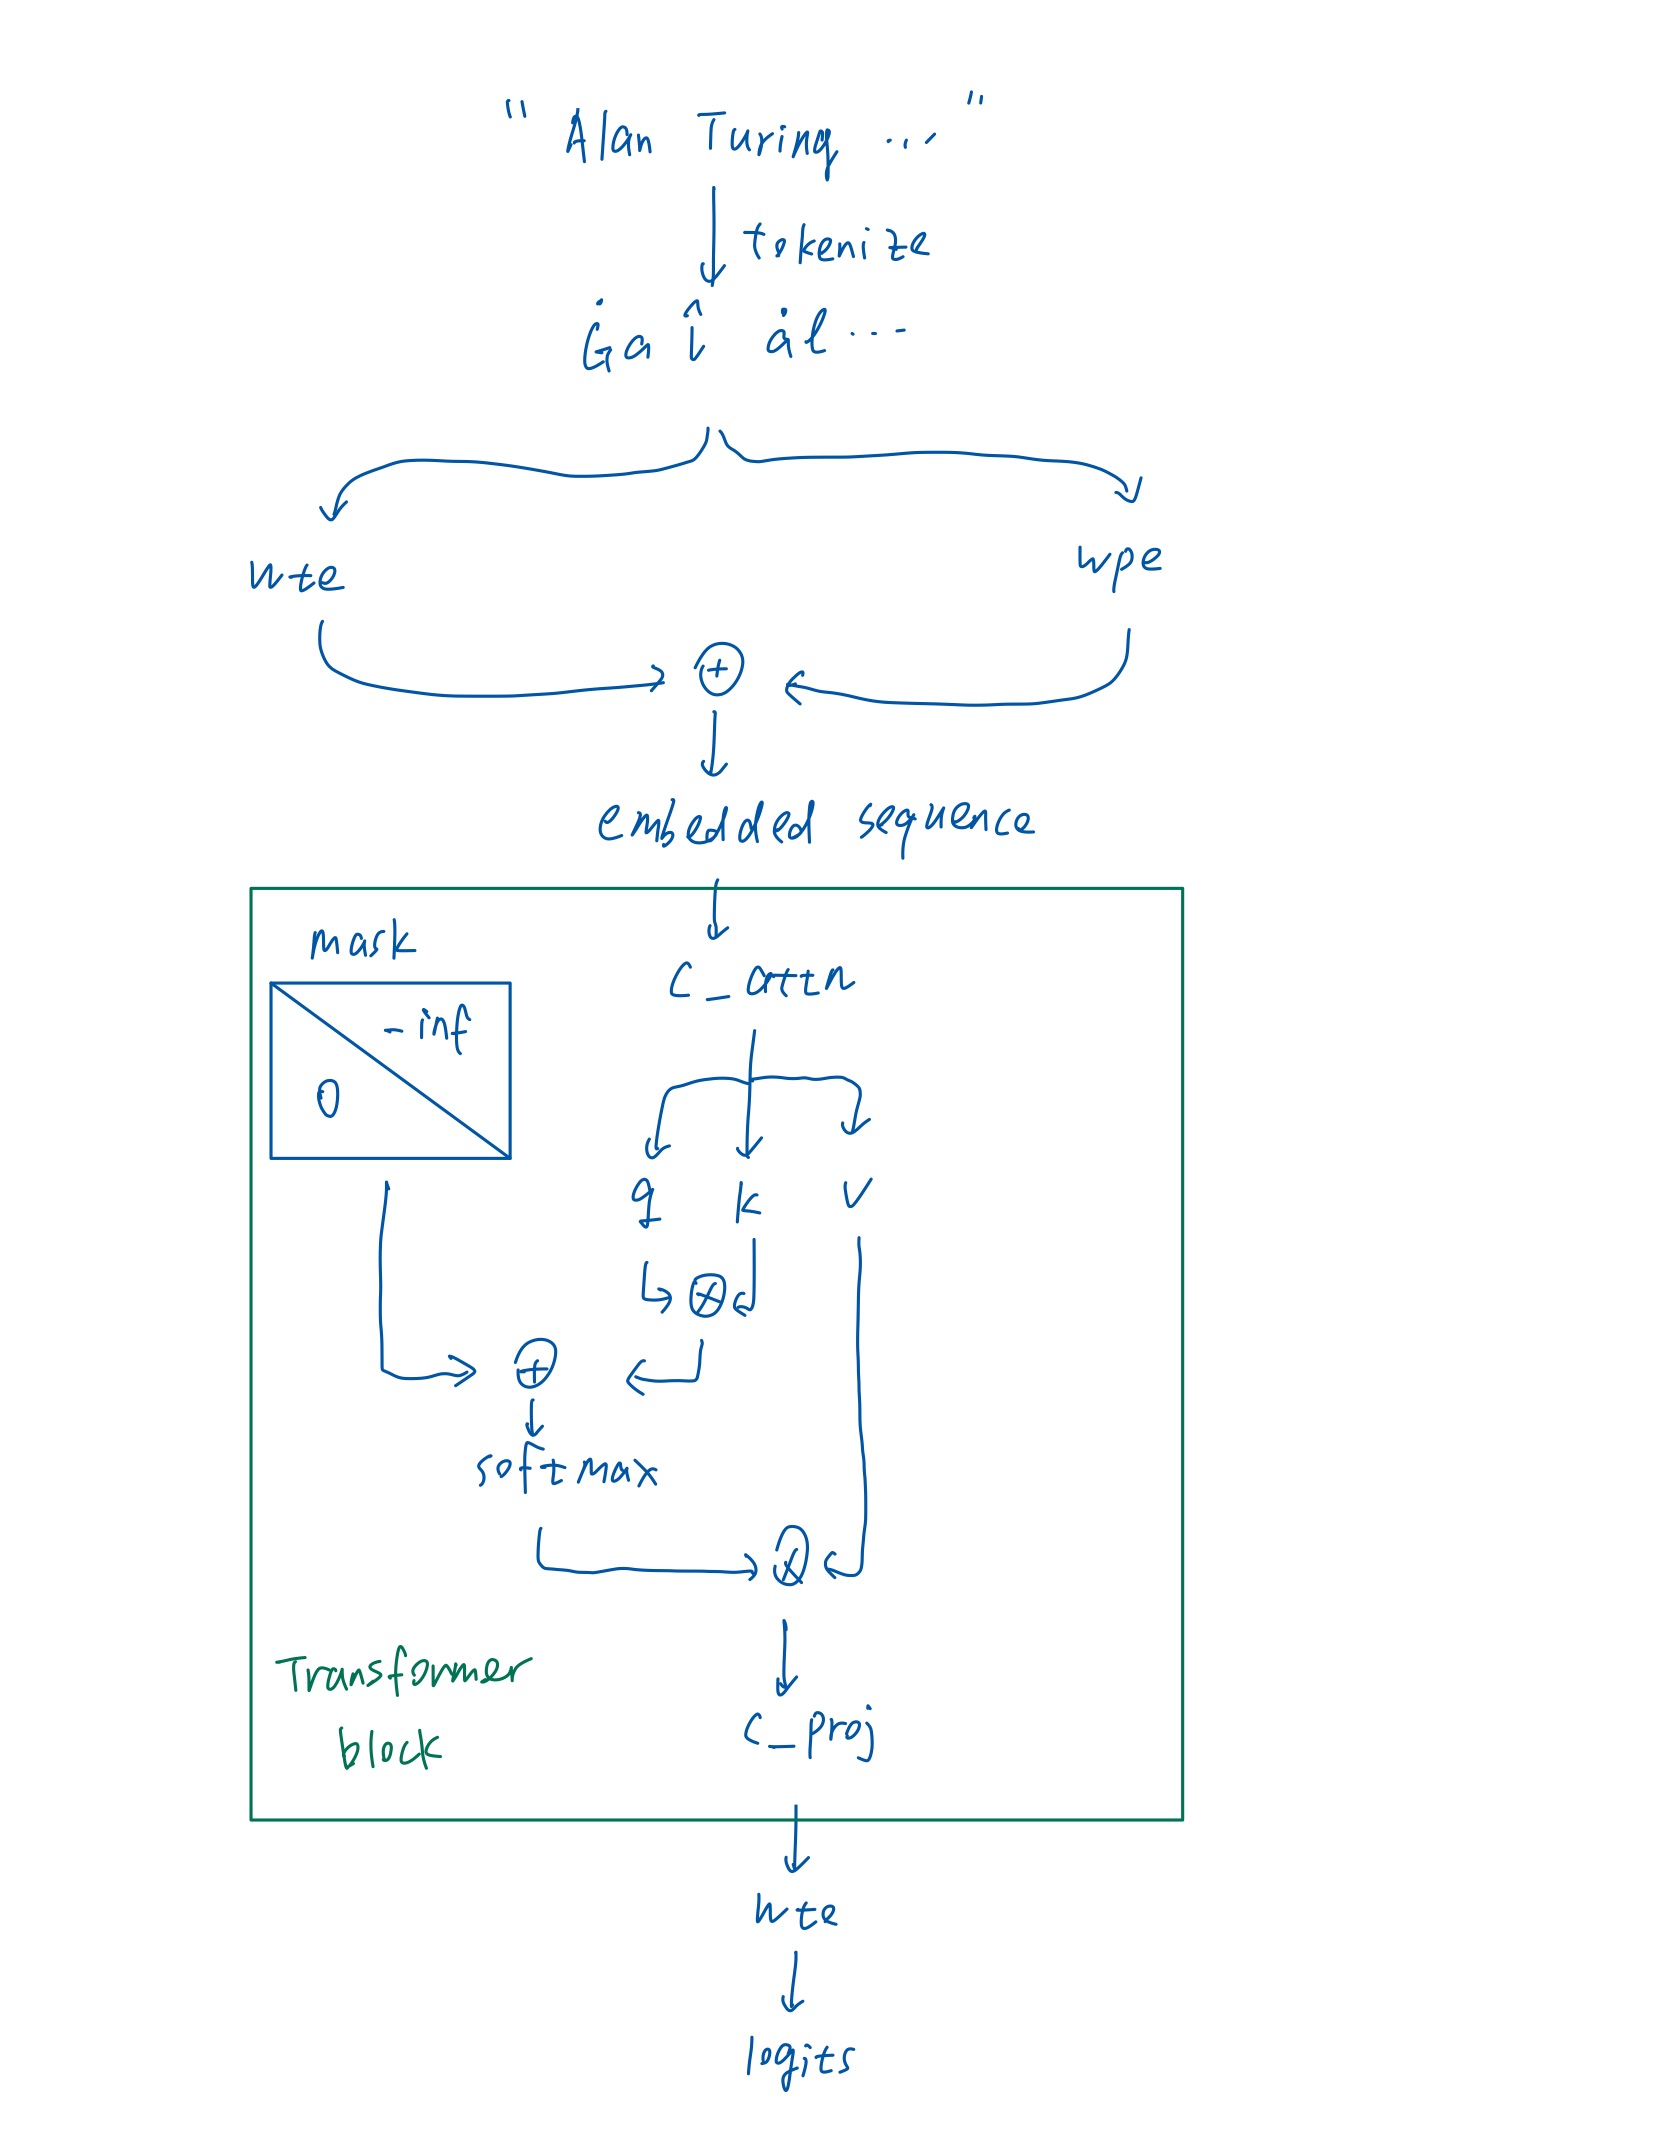 “ Alan Turing ... ”
tokenize
Ġa Î ål ...
wte
wpe
+
embedded sequence
mask
-inf
0
c_attn
q k v
×
+
softmax
×
c_proj
Transformer
block
wte
logits